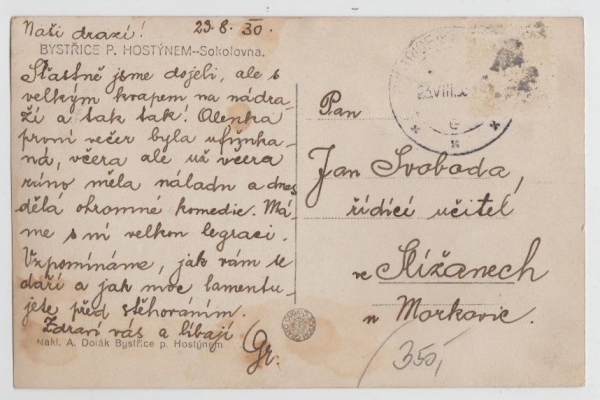 Naši drazí! 23.8.30.
BYSTŘICE P. HOSTÝNEM--Sokolovna.
Šťastně jsme dojeli, ale s
velkým kvapem na nádra-
ží a tak tak! Olenka
první večer byla ufňnka-
ná, včera ale už včera
ráno měla náladu a dnes
dělá ohromné komedie. Má-
me s ní velkou legraci.
Vzpomínáme, jak vám se
daří a jak moc lamentu-
jete před stěhováním.
Zdraví vás a líbají
Gr.
Nakl. A. Dolák Bystřice p. Hostýnem
Pan
Jan Svoboda,
řídící učitel
ve Slížanech
u Morkovic.
350,